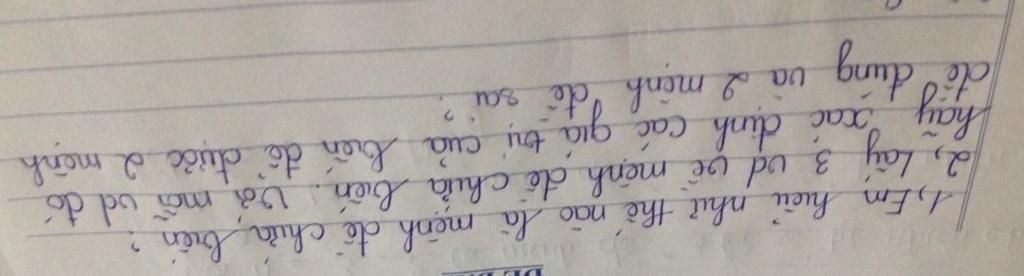 1, Em hiểu như thế nào là mệnh đề chứa biến?
2, Lấy 3 vd về mệnh đề chứa biến. Với mỗi vd đó
hãy xác định các giá trị của biến để được 2 mệnh
đề đúng và 2 mệnh đề sai.